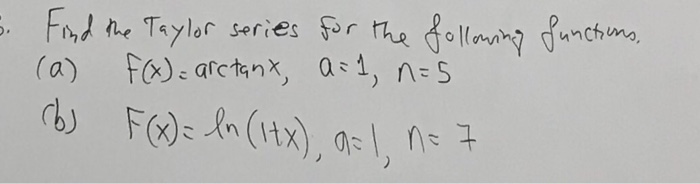 5. Find the Taylor series for the following functions.
(a) F(x) = arctanx, a=1, n=5
(b) F(x) = ln(1+x), a=1, n=7